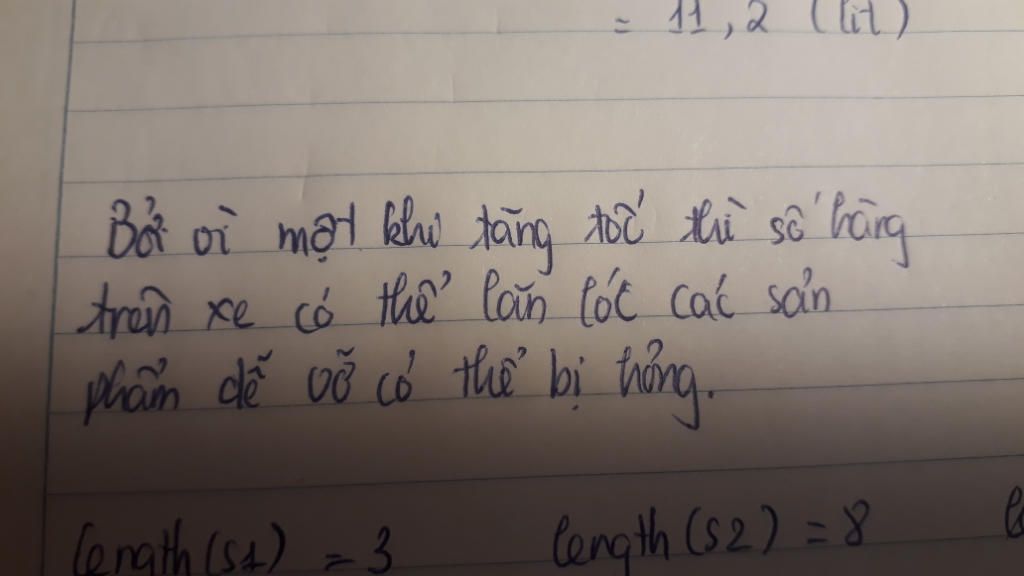 = 11,2 (lít)
Bởi vì một khi tăng tốc thì số hàng
trên xe có thể lăn lóc các sản
phẩm dễ vỡ có thể bị hỏng.
length(s1) = 3 length(s2) = 8